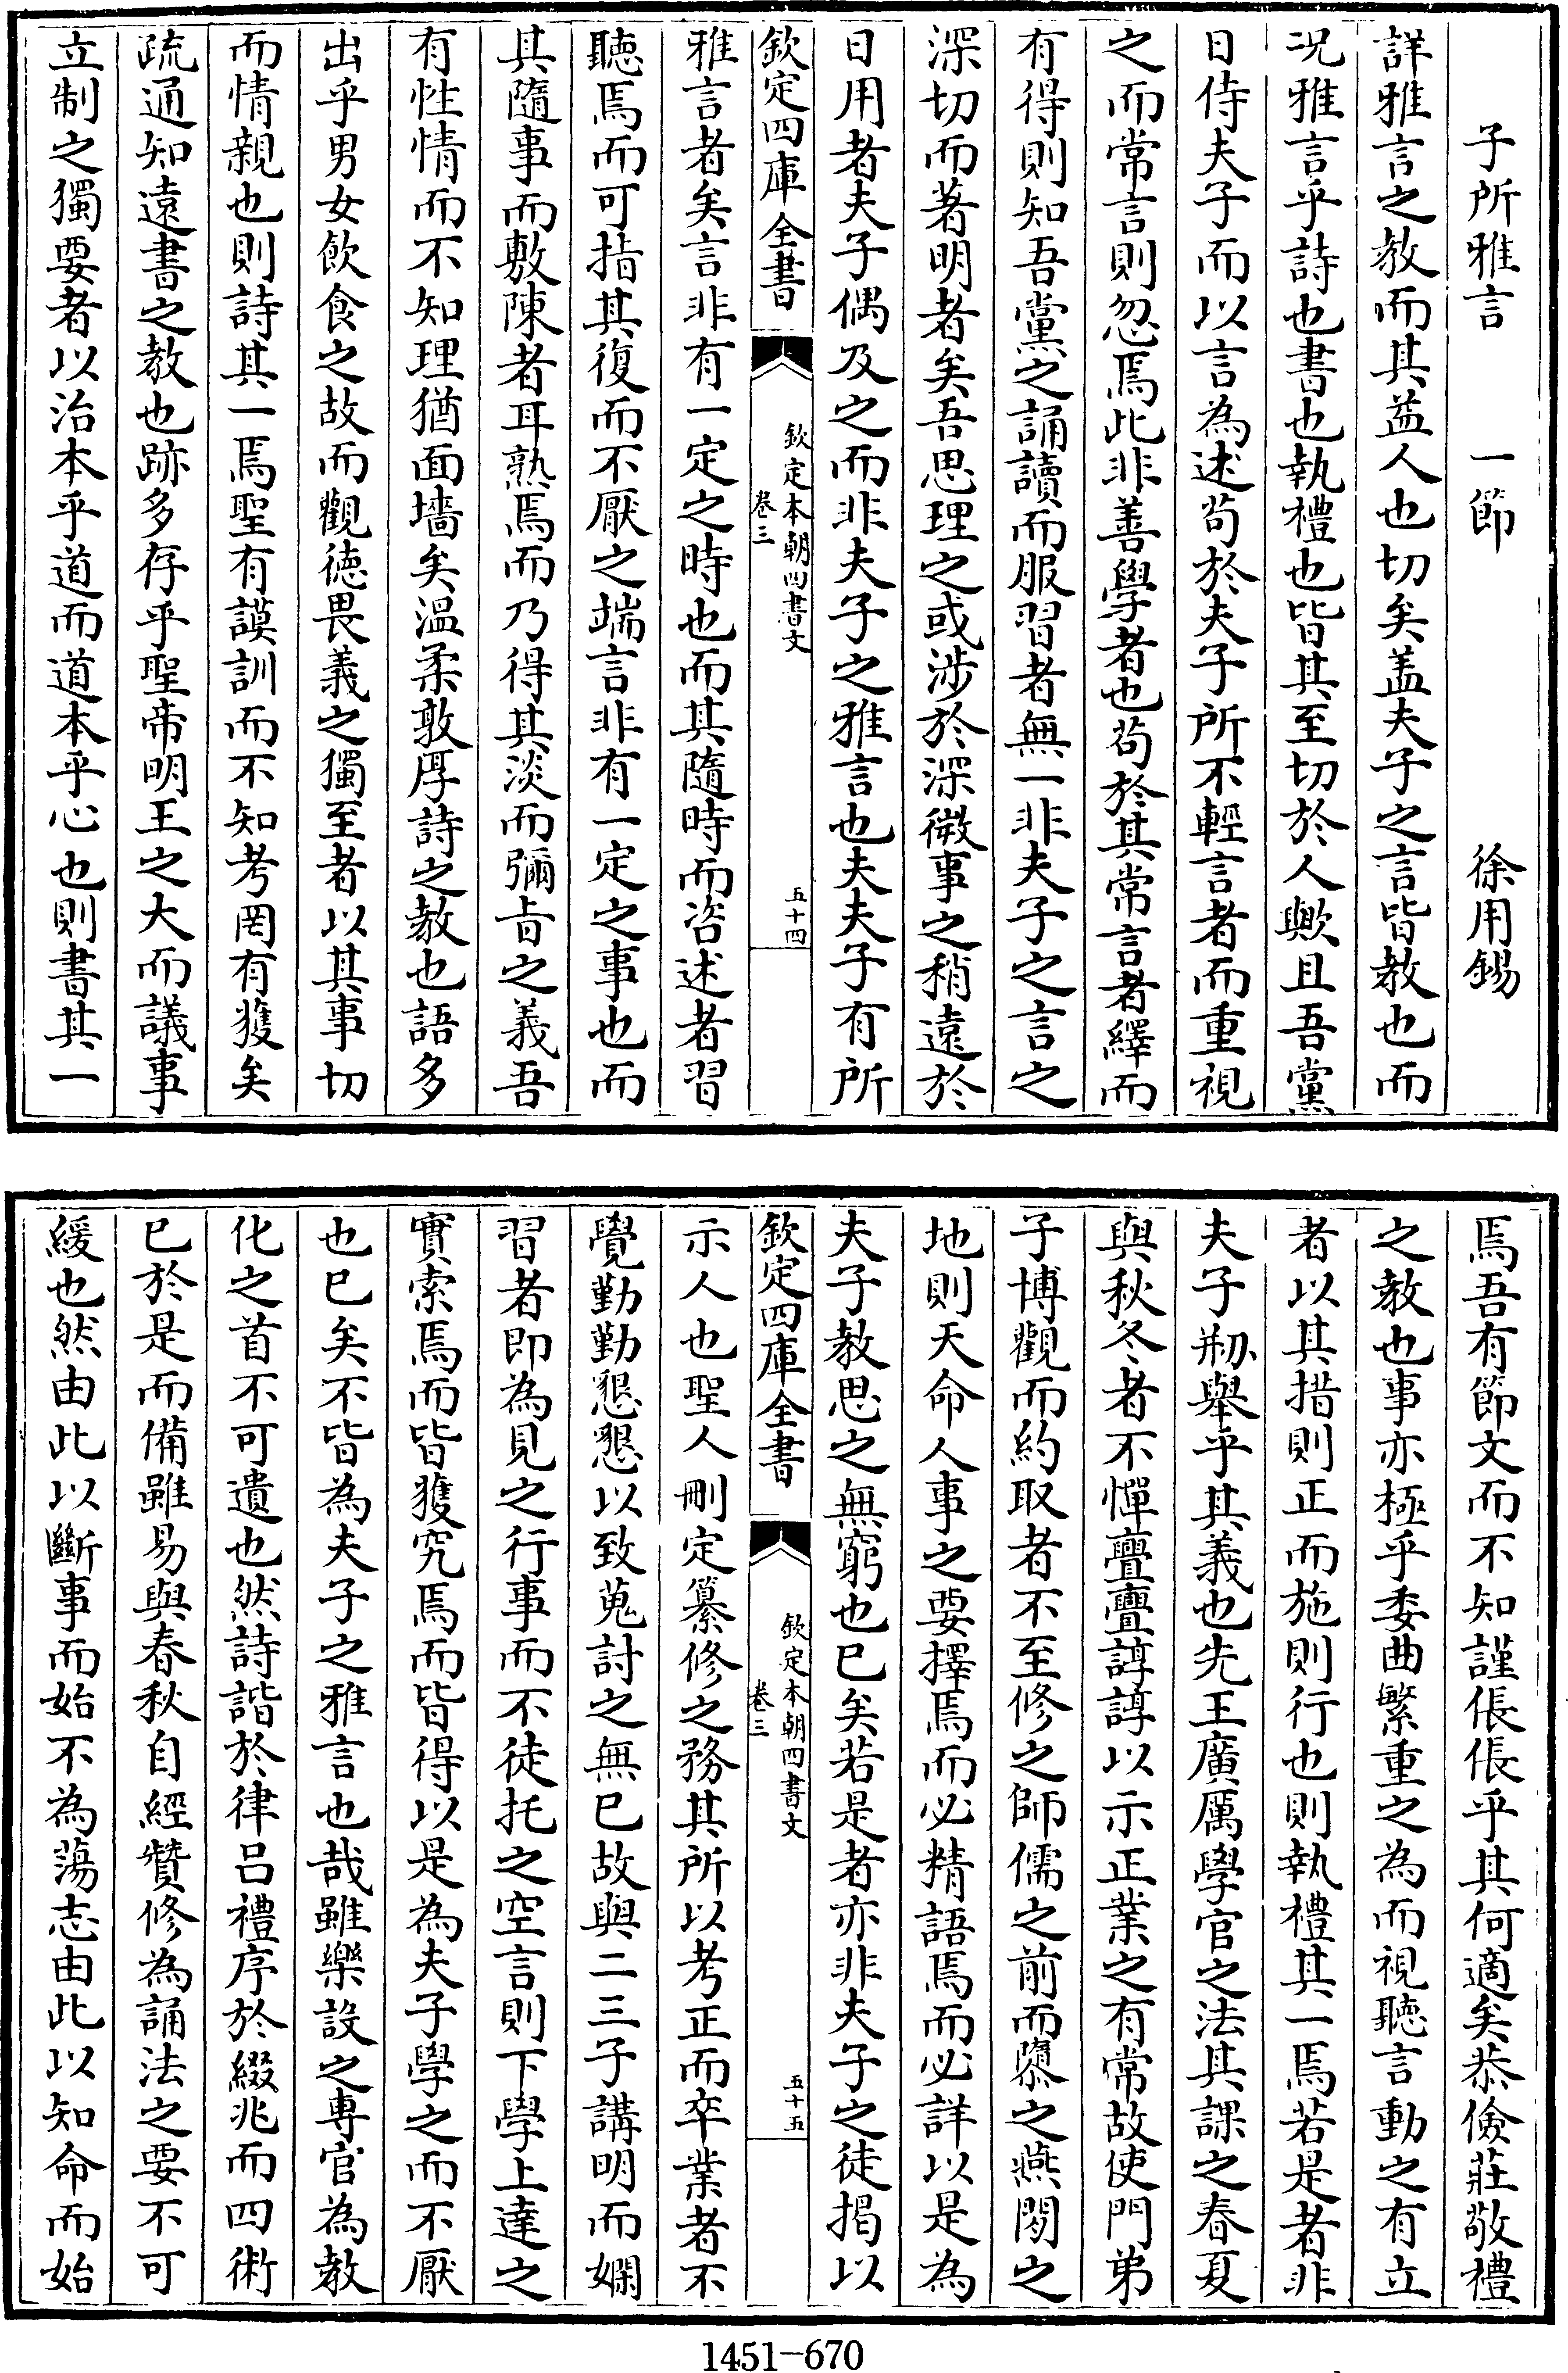 子所雅言　一節　徐用錫
詳雅言之教而其益人也切矣盖夫子之言皆教也而
况雅言乎詩也書也執禮也皆其至切於人歟且吾黨
日侍夫子而以言為述茍於夫子所不輕言者而重視
之而常言則忽焉此非善學者也茍於其常言者繹而
有得則知吾黨之誦讀而服習者無一非夫子之言之
深切而著明者矣吾思理之或涉於深微事之稍遠於
日用者夫子偶及之而非夫子之雅言也夫夫子有所
欽定四庫全書
欽定本朝四書文
卷三
五十四
雅言者矣言非有一定之時也而其隨時而咨述者習
聽焉而可指其復而不厭之端言非有一定之事也而
其隨事而敷陳者耳熟焉而乃得其淡而彌旨之義吾
有性情而不知理猶面墻矣溫柔敦厚詩之教也語多
出乎男女飲食之故而觀德畏義之獨至者以其事切
而情親也則詩其一焉聖有謨訓而不知考罔有獲矣
疏通知遠書之教也跡多存乎聖帝明王之大而議事
立制之獨要者以治本乎道而道本乎心也則書其一
焉吾有節文而不知謹倀倀乎其何適矣恭儉莊敬禮
之教也事亦極乎委曲繁重之為而視聽言動之有立
者以其措則正而施則行也則執禮其一焉若是者非
夫子剏舉乎其義也先王廣厲學官之法其課之春夏
與秋冬者不憚亹亹諄諄以示正業之有常故使門弟
子博觀而約取者不至修之師儒之前而隳之燕閒之
地則天命人事之要擇焉而必精語焉而必詳以是為
夫子教思之無窮也已矣若是者亦非夫子之徒揭以
欽定四庫全書
欽定本朝四書文
卷三
五十五
示人也聖人刪定纂修之務其所以考正而卒業者不
覺勤勤懇懇以致蒐討之無已故與二三子講明而嫻
習者即為見之行事而不徒托之空言則下學上達之
實索焉而皆獲究焉而皆得以是為夫子學之而不厭
也已矣不皆為夫子之雅言也哉雖樂設之專官為教
化之首不可遺也然詩諧於律吕禮序於綴兆而四術
已於是而備雖易與春秋自經贊修為誦法之要不可
緩也然由此以斷事而始不為蕩志由此以知命而始
1451-670